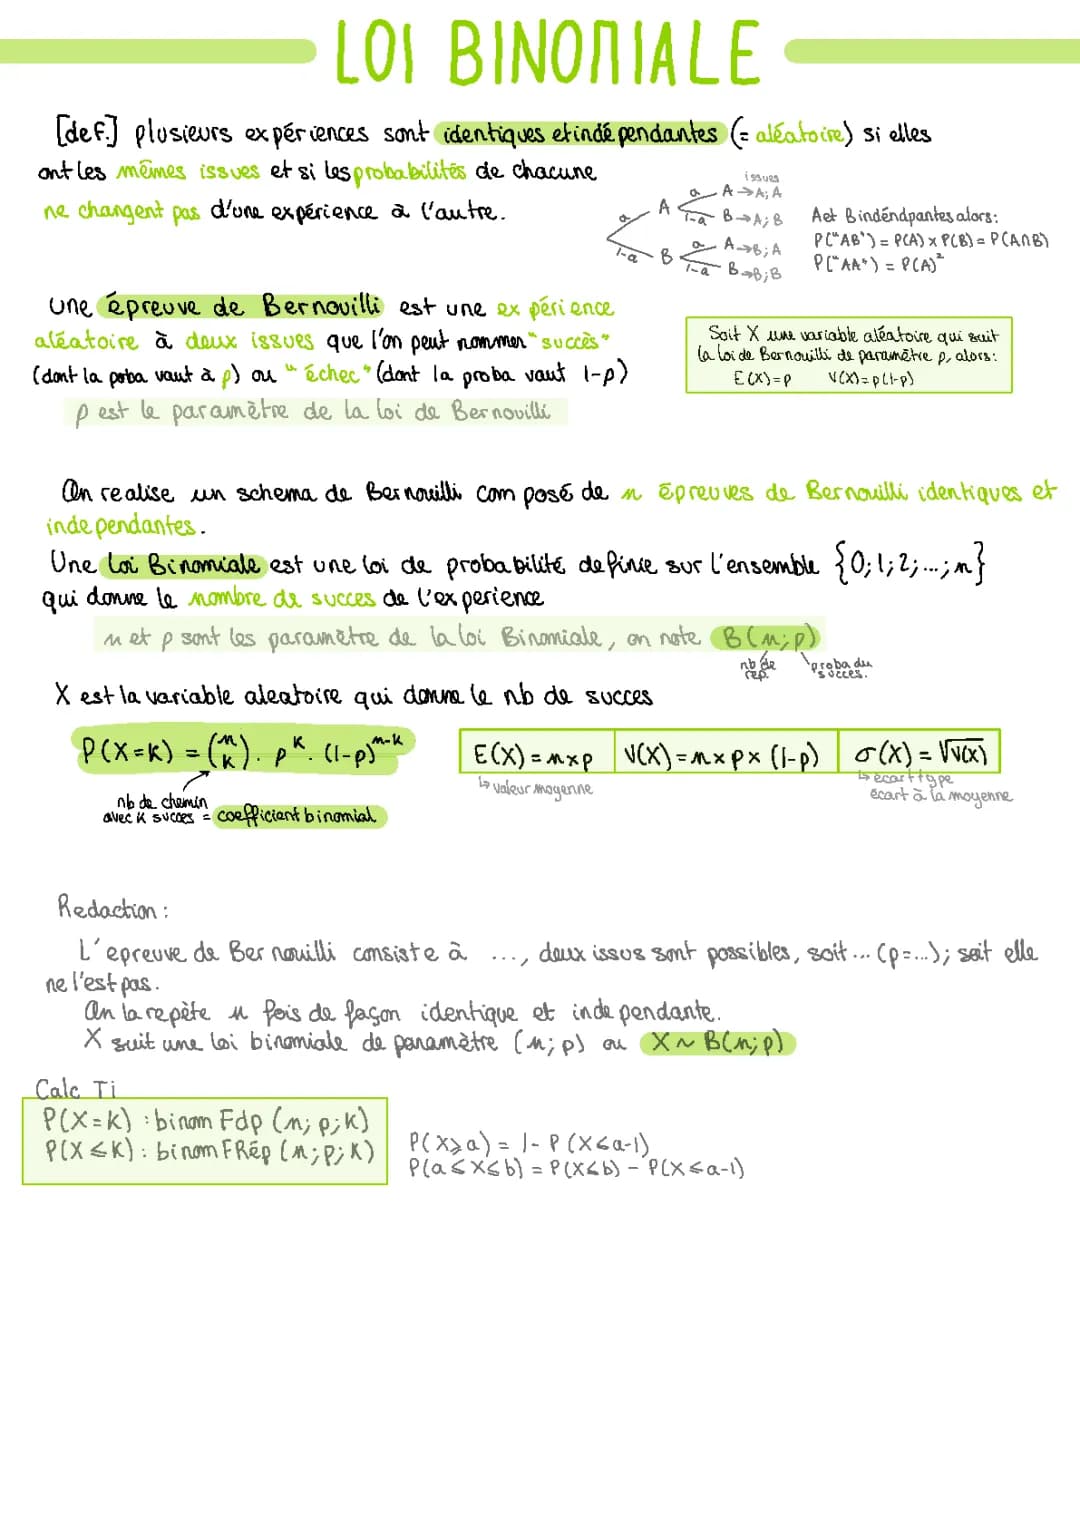 LOI BINOMIALE
[def.] plusieurs expériences sont identiques et indépendantes (= aléatoire) si elles
ont les mêmes issues et si les probabilités de chacune
ne changent pas d'une expérience à l'autre.
issues
a A → A; A
a A 1-a B → A; B
1-a B a A → B; A
1-a B → B; B
A et B indéndpantes alors:
P("AB") = P(A) x P(B) = P(A∩B)
P("AA") = P(A)²
une épreuve de Bernouilli est une expérience
aléatoire à deux issues que l'on peut nommer "succès"
(dont la poba vaut à p) ou "échec" (dont la proba vaut 1-p)
p est le paramètre de la loi de Bernouilli
Soit X une variable aléatoire qui suit
la loi de Bernouilli de paramètre p, alors:
E(X)=p V(X)=p(1-p)
On realise un schema de Bernouilli composé de n épreuves de Bernouilli identiques et
independantes.
Une Loi Binomiale est une loi de probabilité definie sur l'ensemble {0;1;2;...;n}
qui donne le nombre de succes de l'experience
n et p sont les paramètre de la loi Binomiale, on note B(n;p)
nb de rep. proba du succes.
X est la variable aleatoire qui donne le nb de succes
P(X=k) = (n k) . p^k . (1-p)^n-k
E(X) = n x p V(X) = n x p x (1-p) σ(X) = √V(X)
↳ valeur moyenne ↳ ecart type
écart à la moyenne
nb de chemin
avec k succes = coefficient binomial
Redaction :
L'epreuve de Bernouilli consiste à ..., deux issus sont possibles, soit ... (p=...); soit elle
ne l'est pas.
On la repète n fois de façon identique et independante.
X suit une loi binomiale de paramètre (n;p) ou X ~ B(n;p)
Calc Ti
P(X=k) : binom Fdp (n; p; k)
P(X ≤ k) : binom FRép (n; p; k)
P(X ⩾ a) = 1 - P(X ≤ a-1)
P(a ≤ X ≤ b) = P(X ≤ b) - P(X ≤ a-1)